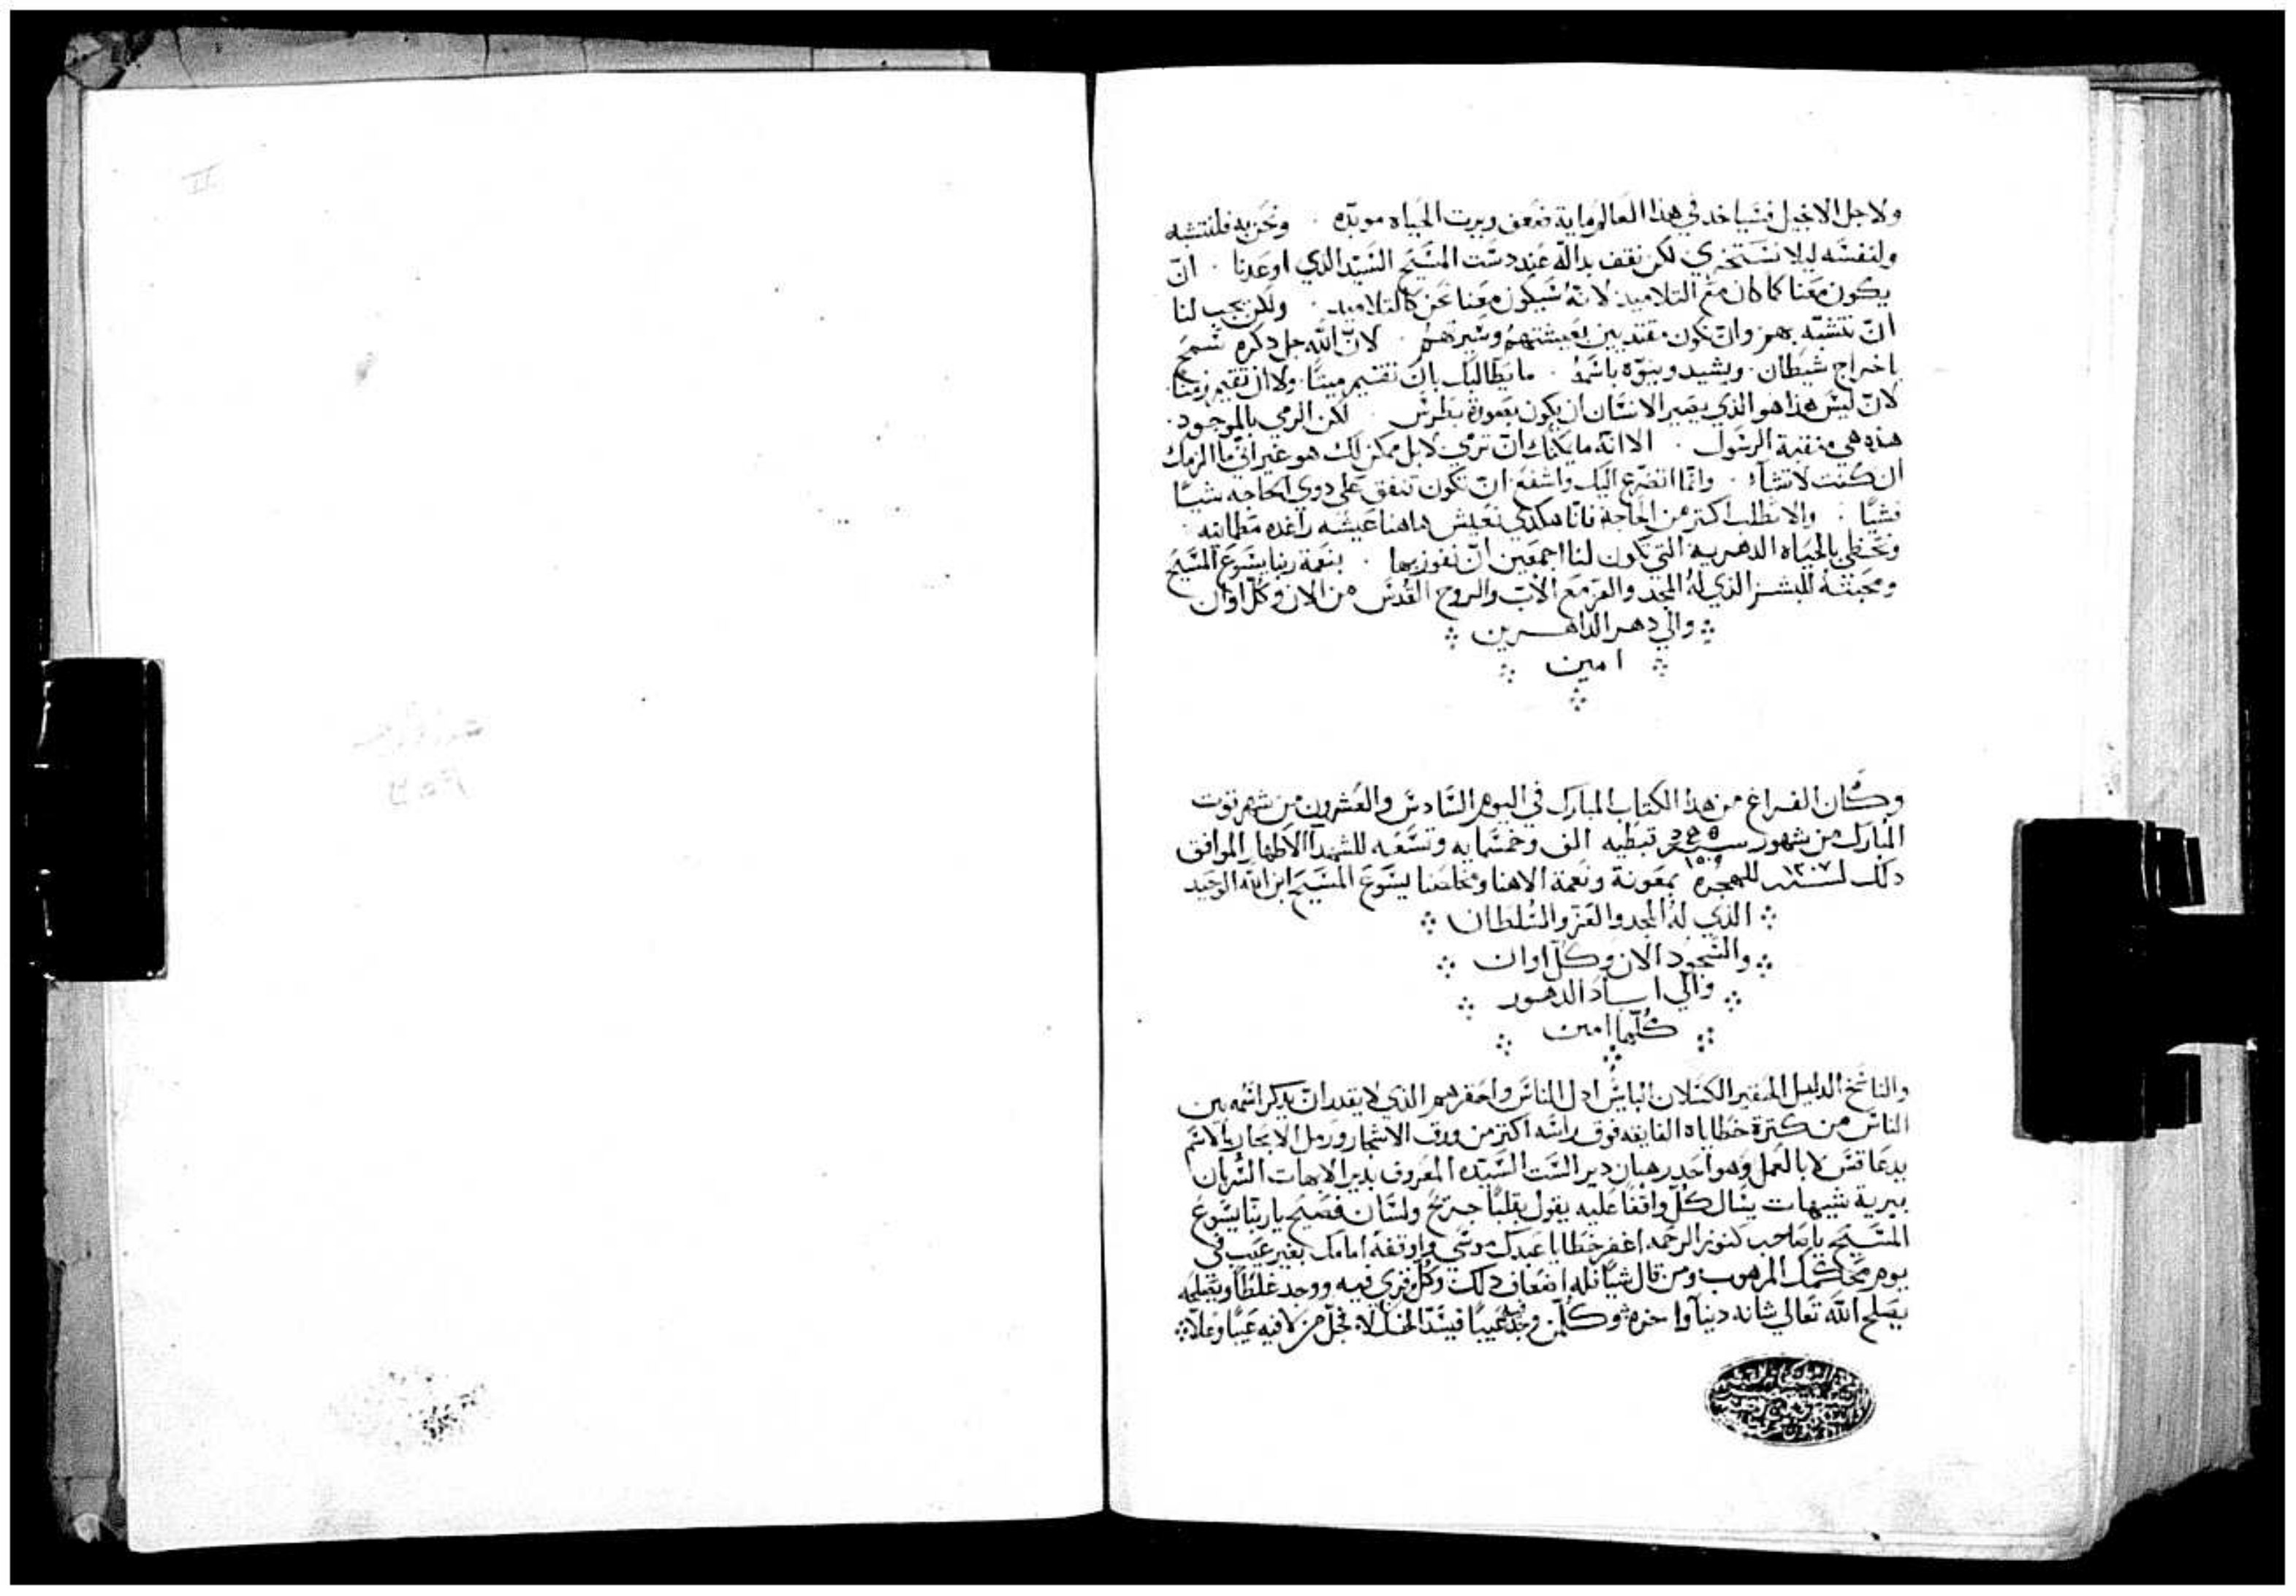 ولاجل الانجيل فسياخد في هذا العالم مايه ضعف ويرت الحياه موبده . ونحن به فلنتشبه
ولنفسه ليلا نستخزي لكن نقف بداله عند دست المسيح السيد الذي اوعدنا . انّ
يكون معنا كما كان مع التلاميد لانه سيكون معنا نحن كالتلاميد . ولكن يجب لنا
انّ نتشبّه بهم وانّ نكون مقتديين بعيشتهم وسيرتهم . لانّ الله جل دكره سمح
باخراج شيطان . ويشيد وينوّه باسمه . ما يطالبك بانّ تقيم ميتًا . ولا ان تقيم زمنًا .
لانّ ليس هذا هو الذي يصير الانسان ان يكون بصورة بطرس . لكن الرمي بالموجود .
هذه هي منقبة الرسول . الا انّه ما يمكنك انّ ترمي لا بل ممكن لك هو غير انّي ما الزمك
ان كنت لا تشآء . وانّما اتضرّع اليك واشفع انّ تكون تنفق علي دوي الحاجه شيًا
فشيًا . والا تطلب اكتر من الحاجة فانّا هكدي نعيش هاهنا عيشه راغده مطمانيه .
ونحظي بالحياه الدهرية التي تكون لنا اجمعين انّ نفوز بها . بنعمة ربنا يسوع المسيح
ومحبته للبشر الذي له المجد والعز مع الاب والروح القدس من الان وكل اوان
والي دهر الداهرين
امين
وكان الفراغ من هذا الكتاب المبارك في اليوم السّادس والعشرون من شهر توت
المبارك من شهور سنة قبطيه الف وخمسمايه وتسعه للشهدآ الاطهار الموافق
دلك لسنة ١٣٠٧ للهجره بمعونة ونعمة الاهنا ومخلصنا يسوع المسيح ابن الله الوحيد
الذي له المجد والعزّ والسّلطان
والسّجود الان وكلّ اوان
والي اباد الدهور
كُلّها امين
والناسخ الدليل الحقير الكسلان البايس ادل الناس واحقرهم الذي لا يقدر انّ يدكر اسمه بين
الناس من كترة خطاياه الفايقه فوق راسه اكتر من ورق الاشجار ورمل الابحار بالاسم
يدعا قس لا بالعمل وهو احد رهبان دير الست السّيّده المعروف بدير الابهات السُّريان
ببرية شيهات يسال كُلّ واقفًا عليه يقول بقلبًا جريح ولسان فصيح يا ربّنا يسوع
المسيح يا صاحب كنوز الرحمه اغفر خطايا عبدك موسي واوقفه امامك بغير عيب في
يوم محاكمتك المرهوب ومن قال شيًا فله اضعاف دلك وكُلّ قري فيه ووجد غلطًا ويصلحه
يصلح الله تعالي شانه دينآ واخره وكُلّمن وجد فيه عيبًا فيسدّ الخلا فجلّ من لا فيه عيبًا وعلا